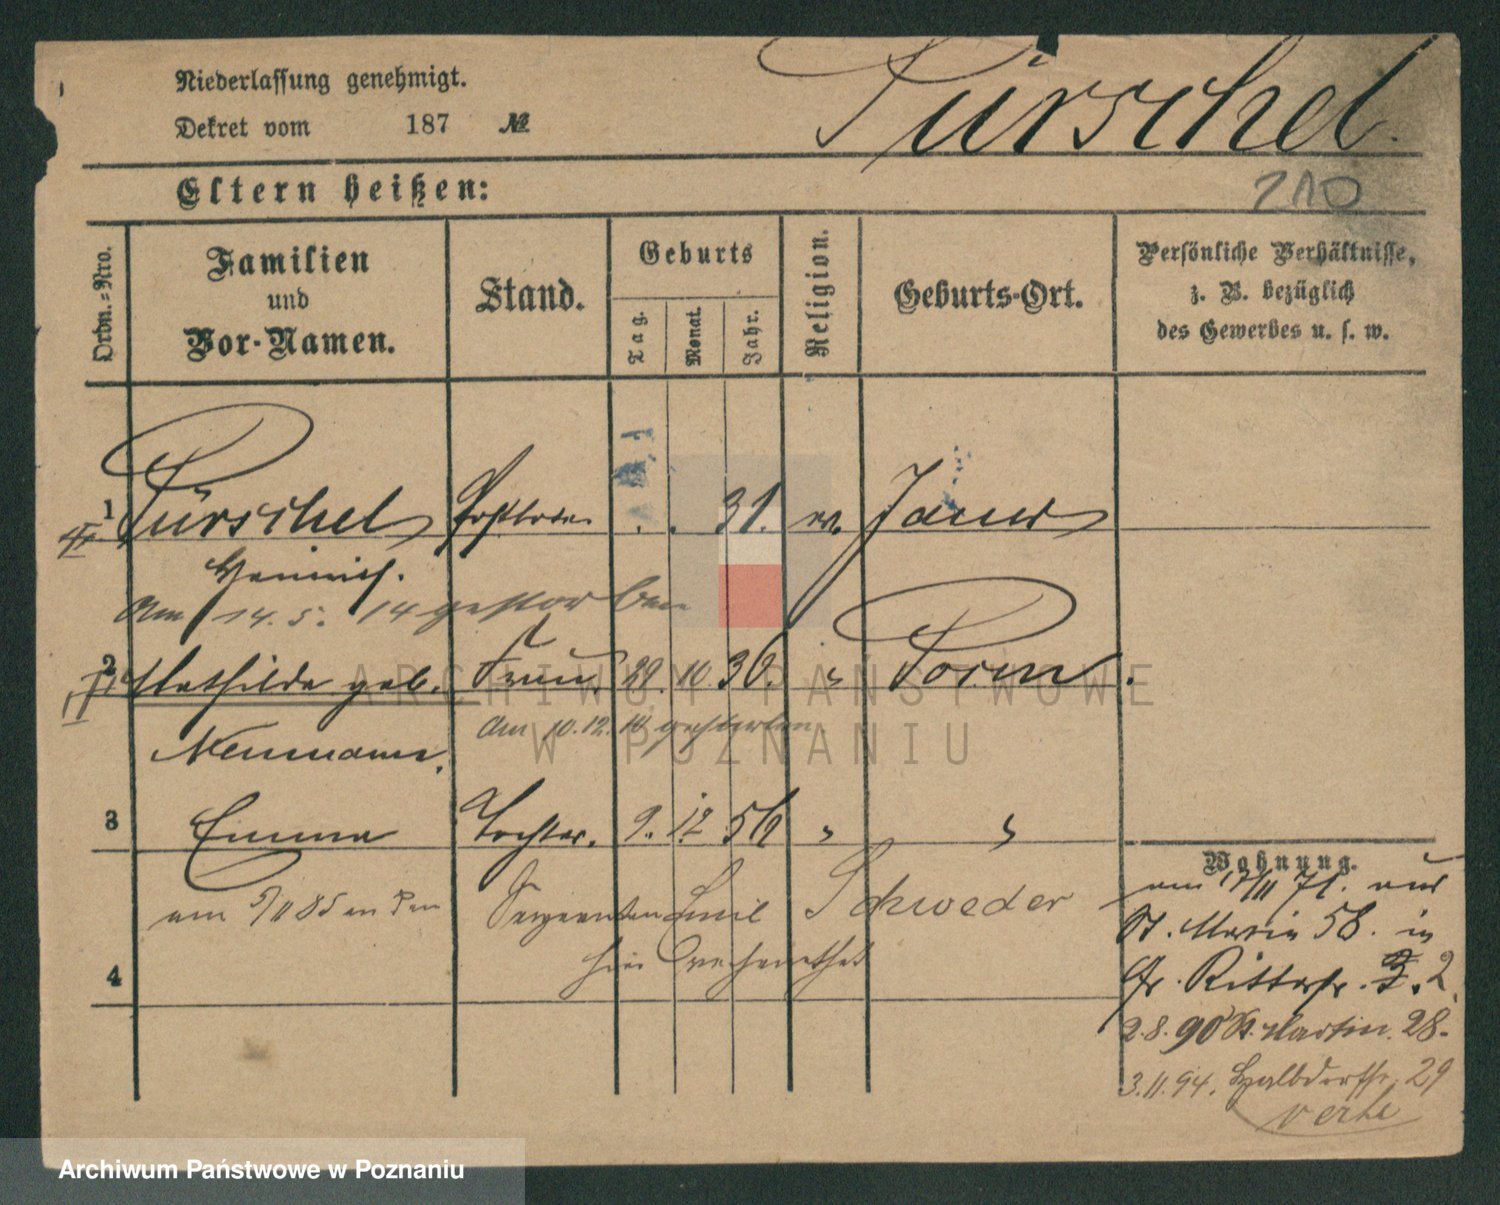 Niederlassung genehmigt.
Dekret vom 187 №
Pürschel.
210
Eltern heißen:
Ordn.-Nro.
Familien
und
Vor-Namen.
Stand.
Geburts
Tag.
Monat.
Jahr.
Religion.
Geburts-Ort.
Persönliche Verhältnisse,
z. B. bezüglich
des Gewerbes u. s. w.
1 Pürschel Postbote . . 31. ev. Jauer
Heinrich.
Am 14. 5. 14 gestorben
2 Mathilde geb. Frau. 29. 10. 30. " Posen.
Am 10. 12. 10 gestorben
Neumann.
3 Emma Tochter. 9. 12 56 " "
am 5/11 85 an den Sergeanten Emil Schweder
hier verheirathet
4
Wohnung.
am 17/11 71. aus
St. Martin 58. in
Gr. Ritterstr. 2.
2.8.90 St. Martin. 28.
3.11.94. Halbdorfstr. 29
ARCHIWUM PAŃSTWOWE
W POZNANIU
Archiwum Państwowe w Poznaniu